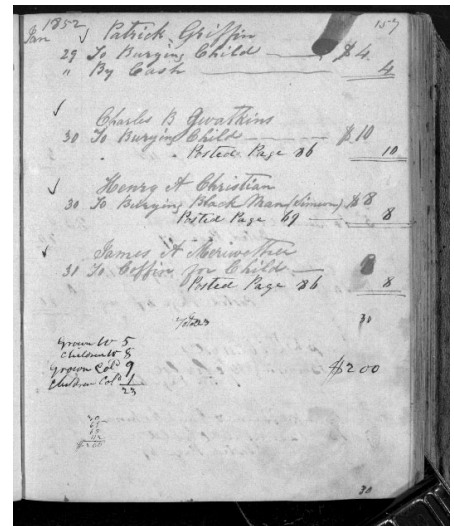 1852 157
Jan ✓ Patrick Griffin
29 To Burying Child $4
" By Cash 4
✓
Charles B Gwatkins
30 To Burying Child $10
" Posted Page 86 10
✓ Henry A Christian
30 To Burying Black Man (Simon) $8
Posted Page 69 8
✓ James A Meriwether
31 To Coffin for Child 8
Posted Page 86 8
30
Grown W 5
Children W 8
Grown Cold 9 $200
Children Cold 1
23
30